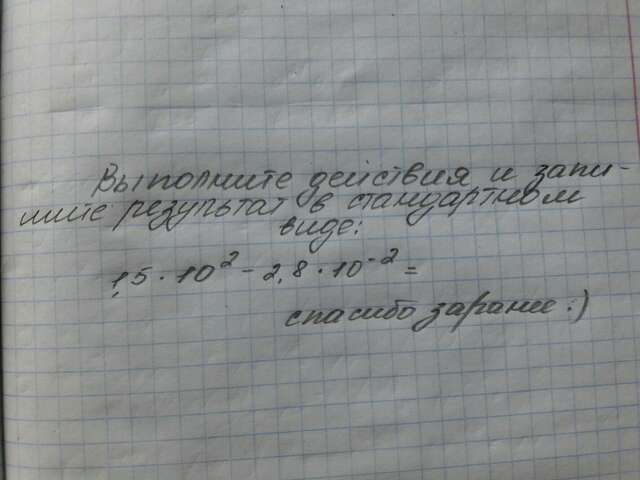 Выполните действия и запи-
шите результат в стандартном
виде:
1,5 · 10² - 2,8 · 10⁻² =
спасибо заранее :)